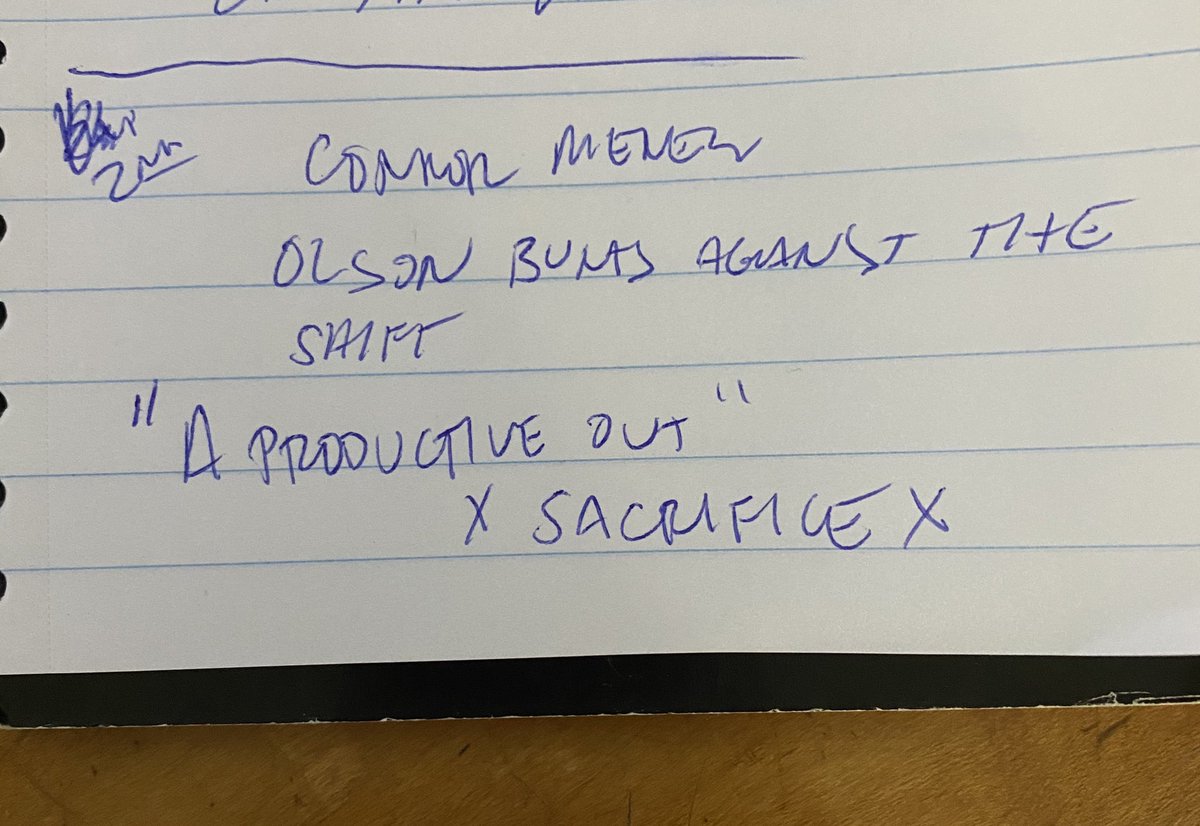 2nd
CONNOR
OLSON BUNTS AGAINST THE
SHIFT
"A PRODUCTIVE OUT"
X SACRIFICE X